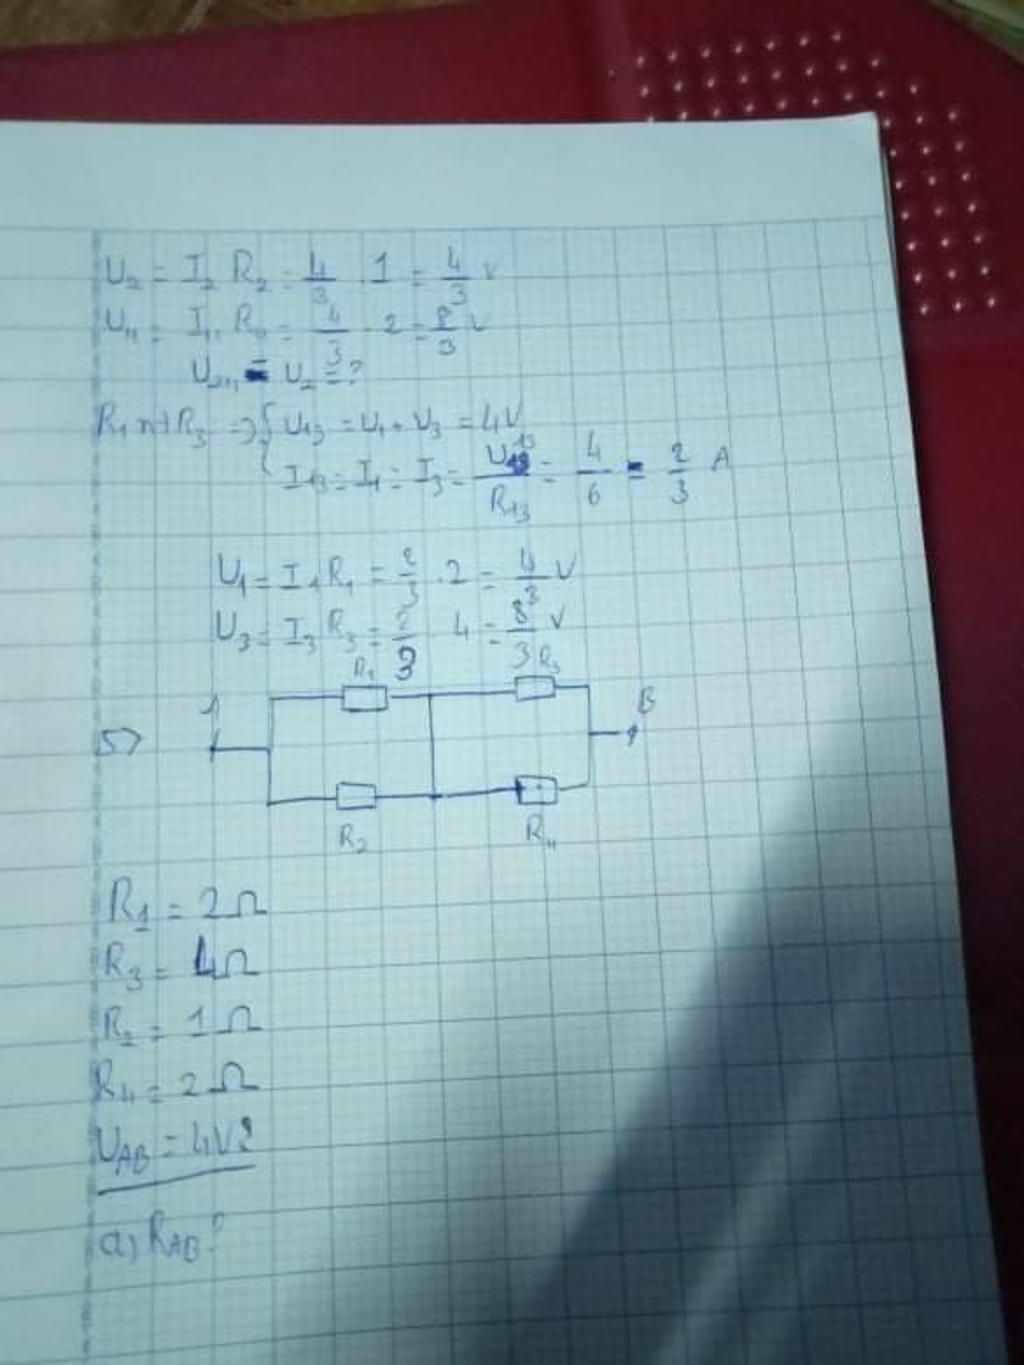 U₂ = I₂ R₂ = 4/3 . 1 = 4/3 V
U₄ = I₄ . R₄ = 4/3 . 2 = 8/3 V
U₂₄ = U₂ = ?
R₁ nt R₃ => { U₁₃ = U₁ + U₃ = 4V
I₁₃ = I₁ = I₃ = U₁₃/R₁₃ = 4/6 = 2/3 A
U₁ = I₁ R₁ = 2/3 . 2 = 4/3 V
U₃ = I₃ R₃ = 2/3 4 = 8/3 V
R₁ R₃
5) B
R₂ R₄
R₁ = 2Ω
R₃ = 4Ω
R₂ = 1Ω
R₄ = 2Ω
U_AB = 4V?
a) R_AB?